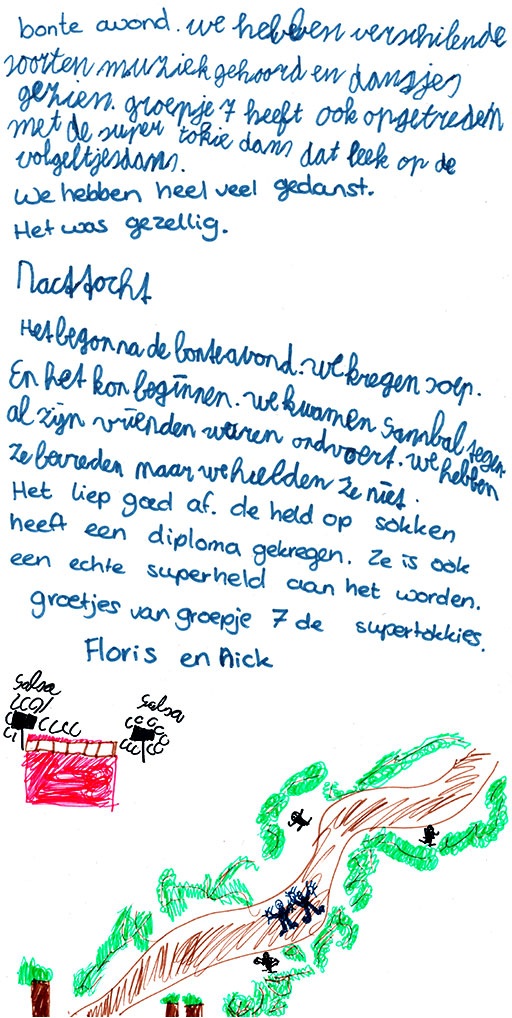 bonte avond. we hebben verschilende
soorten muziek gehoord en dansjes
gezien. groepje 7 heeft ook opgetreden
met de super tokie dans dat leek op de
volgeltjesdans.
We hebben heel veel gedanst.
Het was gezellig.
Nachttocht
Het begon na de bonte avond. we kregen soep.
En het kon beginnen. we kwamen Sannbal tegen.
al zijn vrienden waren ontvoert. we hebben
ze bevreden maar we hielden ze niet.
Het liep goed af. de held op sokken
heeft een diploma gekregen. Ze is ook
een echte superheld aan het worden.
groetjes van groepje 7 de supertokkies.
Floris en Aick
salsa
salsa